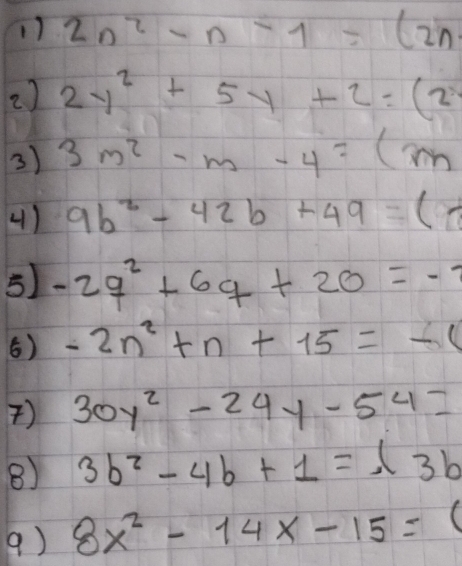 1) 2n² - n - 1 = (2n
2) 2y² + 5y + 2 = (2
3) 3m² - m - 4 = (3m
4) 9b² - 42b + 49 = (
5) -2q² + 6q + 20 = -2
6) -2n² + n + 15 = -(
7) 30y² - 24y - 54 =
8) 3b² - 4b + 1 = (3b
9) 8x² - 14x - 15 = (